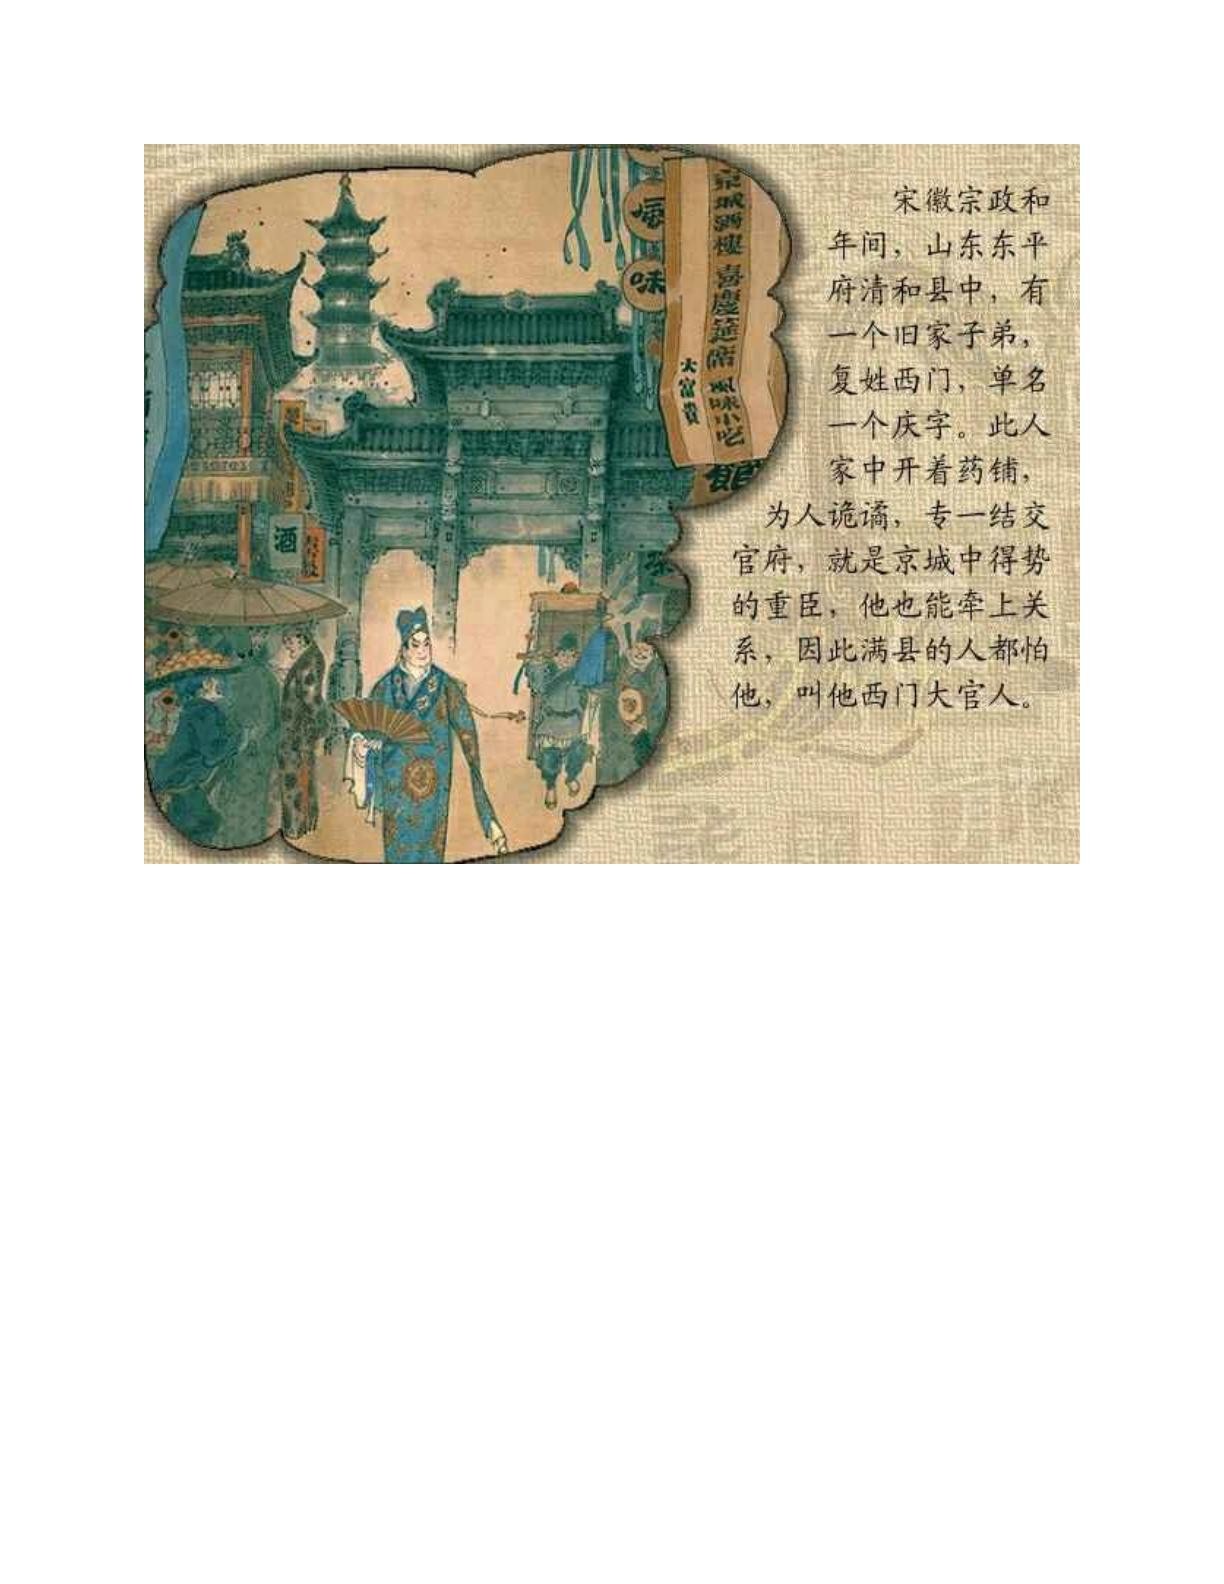 宋徽宗政和
年间，山东东平
府清和县中，有
一个旧家子弟，
复姓西门，单名
一个庆字。此人
家中开着药铺，
为人诡谲，专一结交
官府，就是京城中得势
的重臣，他也能牵上关
系，因此满县的人都怕
他，叫他西门大官人。
京城酒樓 喜慶筵席 風味小吃
大富貴
味
館
酒